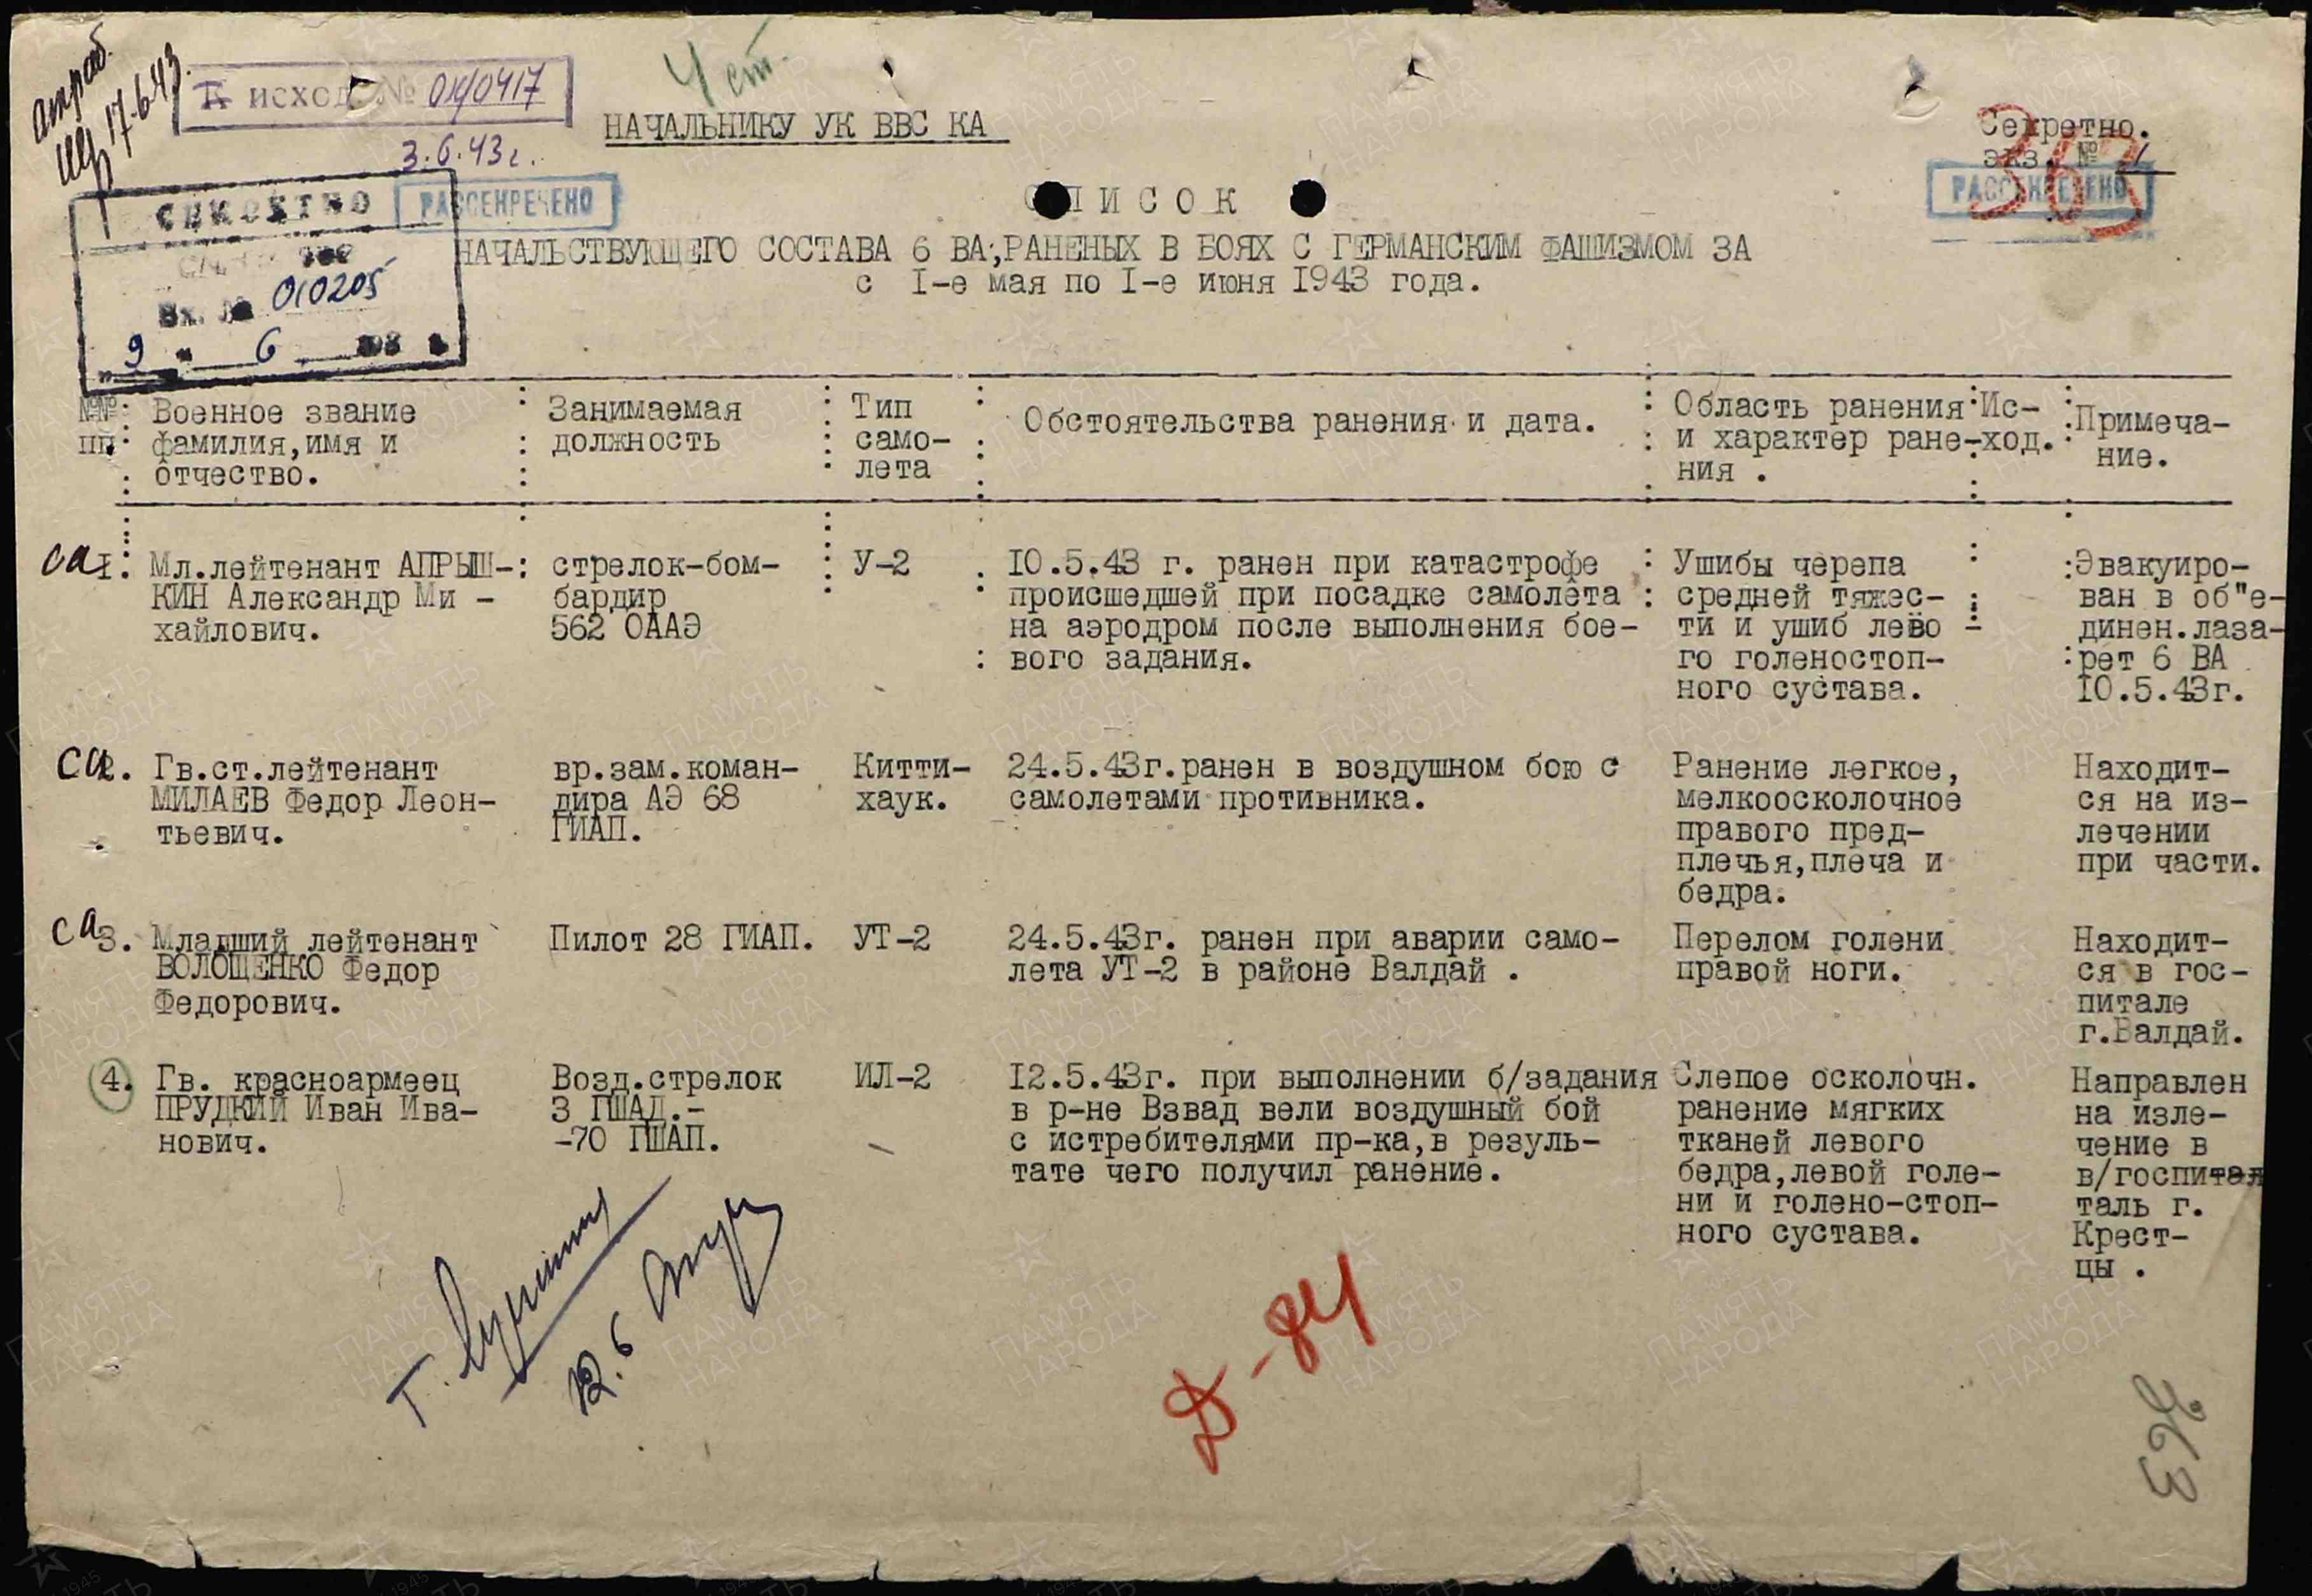 17.6.43
К исход. № 04/0417
3.6.43 г.
4 ст.
НАЧАЛЬНИКУ УК ВВС КА
Секретно.
экз. № 1
363
РАССЕКРЕЧЕНО
РАССЕКРЕЧЕНО
СЕКРЕТНО
Вх. № 010205
9 6
СПИСОК
НАЧАЛЬСТВУЮЩЕГО СОСТАВА 6 ВА;РАНЕНЫХ В БОЯХ С ГЕРМАНСКИМ ФАШИЗМОМ ЗА
с I-е мая по I-е июня 1943 года.
№№ пп
Военное звание
фамилия,имя и
отчество.
Занимаемая
должность
Тип
само-
лета
Обстоятельства ранения и дата.
Область ранения
и характер ране-
ния .
Ис-
ход.
Примеча-
ние.
са I.
Мл.лейтенант АПРЫШ-
КИН Александр Ми -
хайлович.
стрелок-бом-
бардир
562 ОААЭ
У-2
IО.5.43 г. ранен при катастрофе
происшедшей при посадке самолета
на аэродром после выполнения бое-
вого задания.
Ушибы черепа
средней тяжес-
ти и ушиб лево -
го голеностоп-
ного сустава.
Эвакуиро-
ван в об"е-
динен.лаза-
рет 6 ВА
IО.5.43г.
са 2.
Гв.ст.лейтенант
МИЛАЕВ Федор Леон-
тьевич.
вр.зам.коман-
дира АЭ 68
ГИАП.
Китти-
хаук.
24.5.43г.ранен в воздушном бою с
самолетами противника.
Ранение легкое,
мелкоосколочное
правого пред-
плечья,плеча и
бедра.
Находит-
ся на из-
лечении
при части.
са 3.
Младший лейтенант
ВОЛОЩЕНКО Федор
Федорович.
Пилот 28 ГИАП.
УТ-2
24.5.43г. ранен при аварии само-
лета УТ-2 в районе Валдай .
Перелом голени
правой ноги.
Находит-
ся в гос-
питале
г.Валдай.
4.
Гв. красноармеец
ПРУДКИЙ Иван Ива-
нович.
Возд.стрелок
3 ГШАД.-
-70 ГШАП.
ИЛ-2
I2.5.43г. при выполнении б/задания
в р-не Взвад вели воздушный бой
с истребителями пр-ка,в резуль-
тате чего получил ранение.
Слепое осколочн.
ранение мягких
тканей левого
бедра,левой голе-
ни и голено-стоп-
ного сустава.
Направлен
на изле-
чение в
в/госпитал
таль г.
Крест-
цы .
12.6
Д-84
363
ПАМЯТЬ НАРОДА